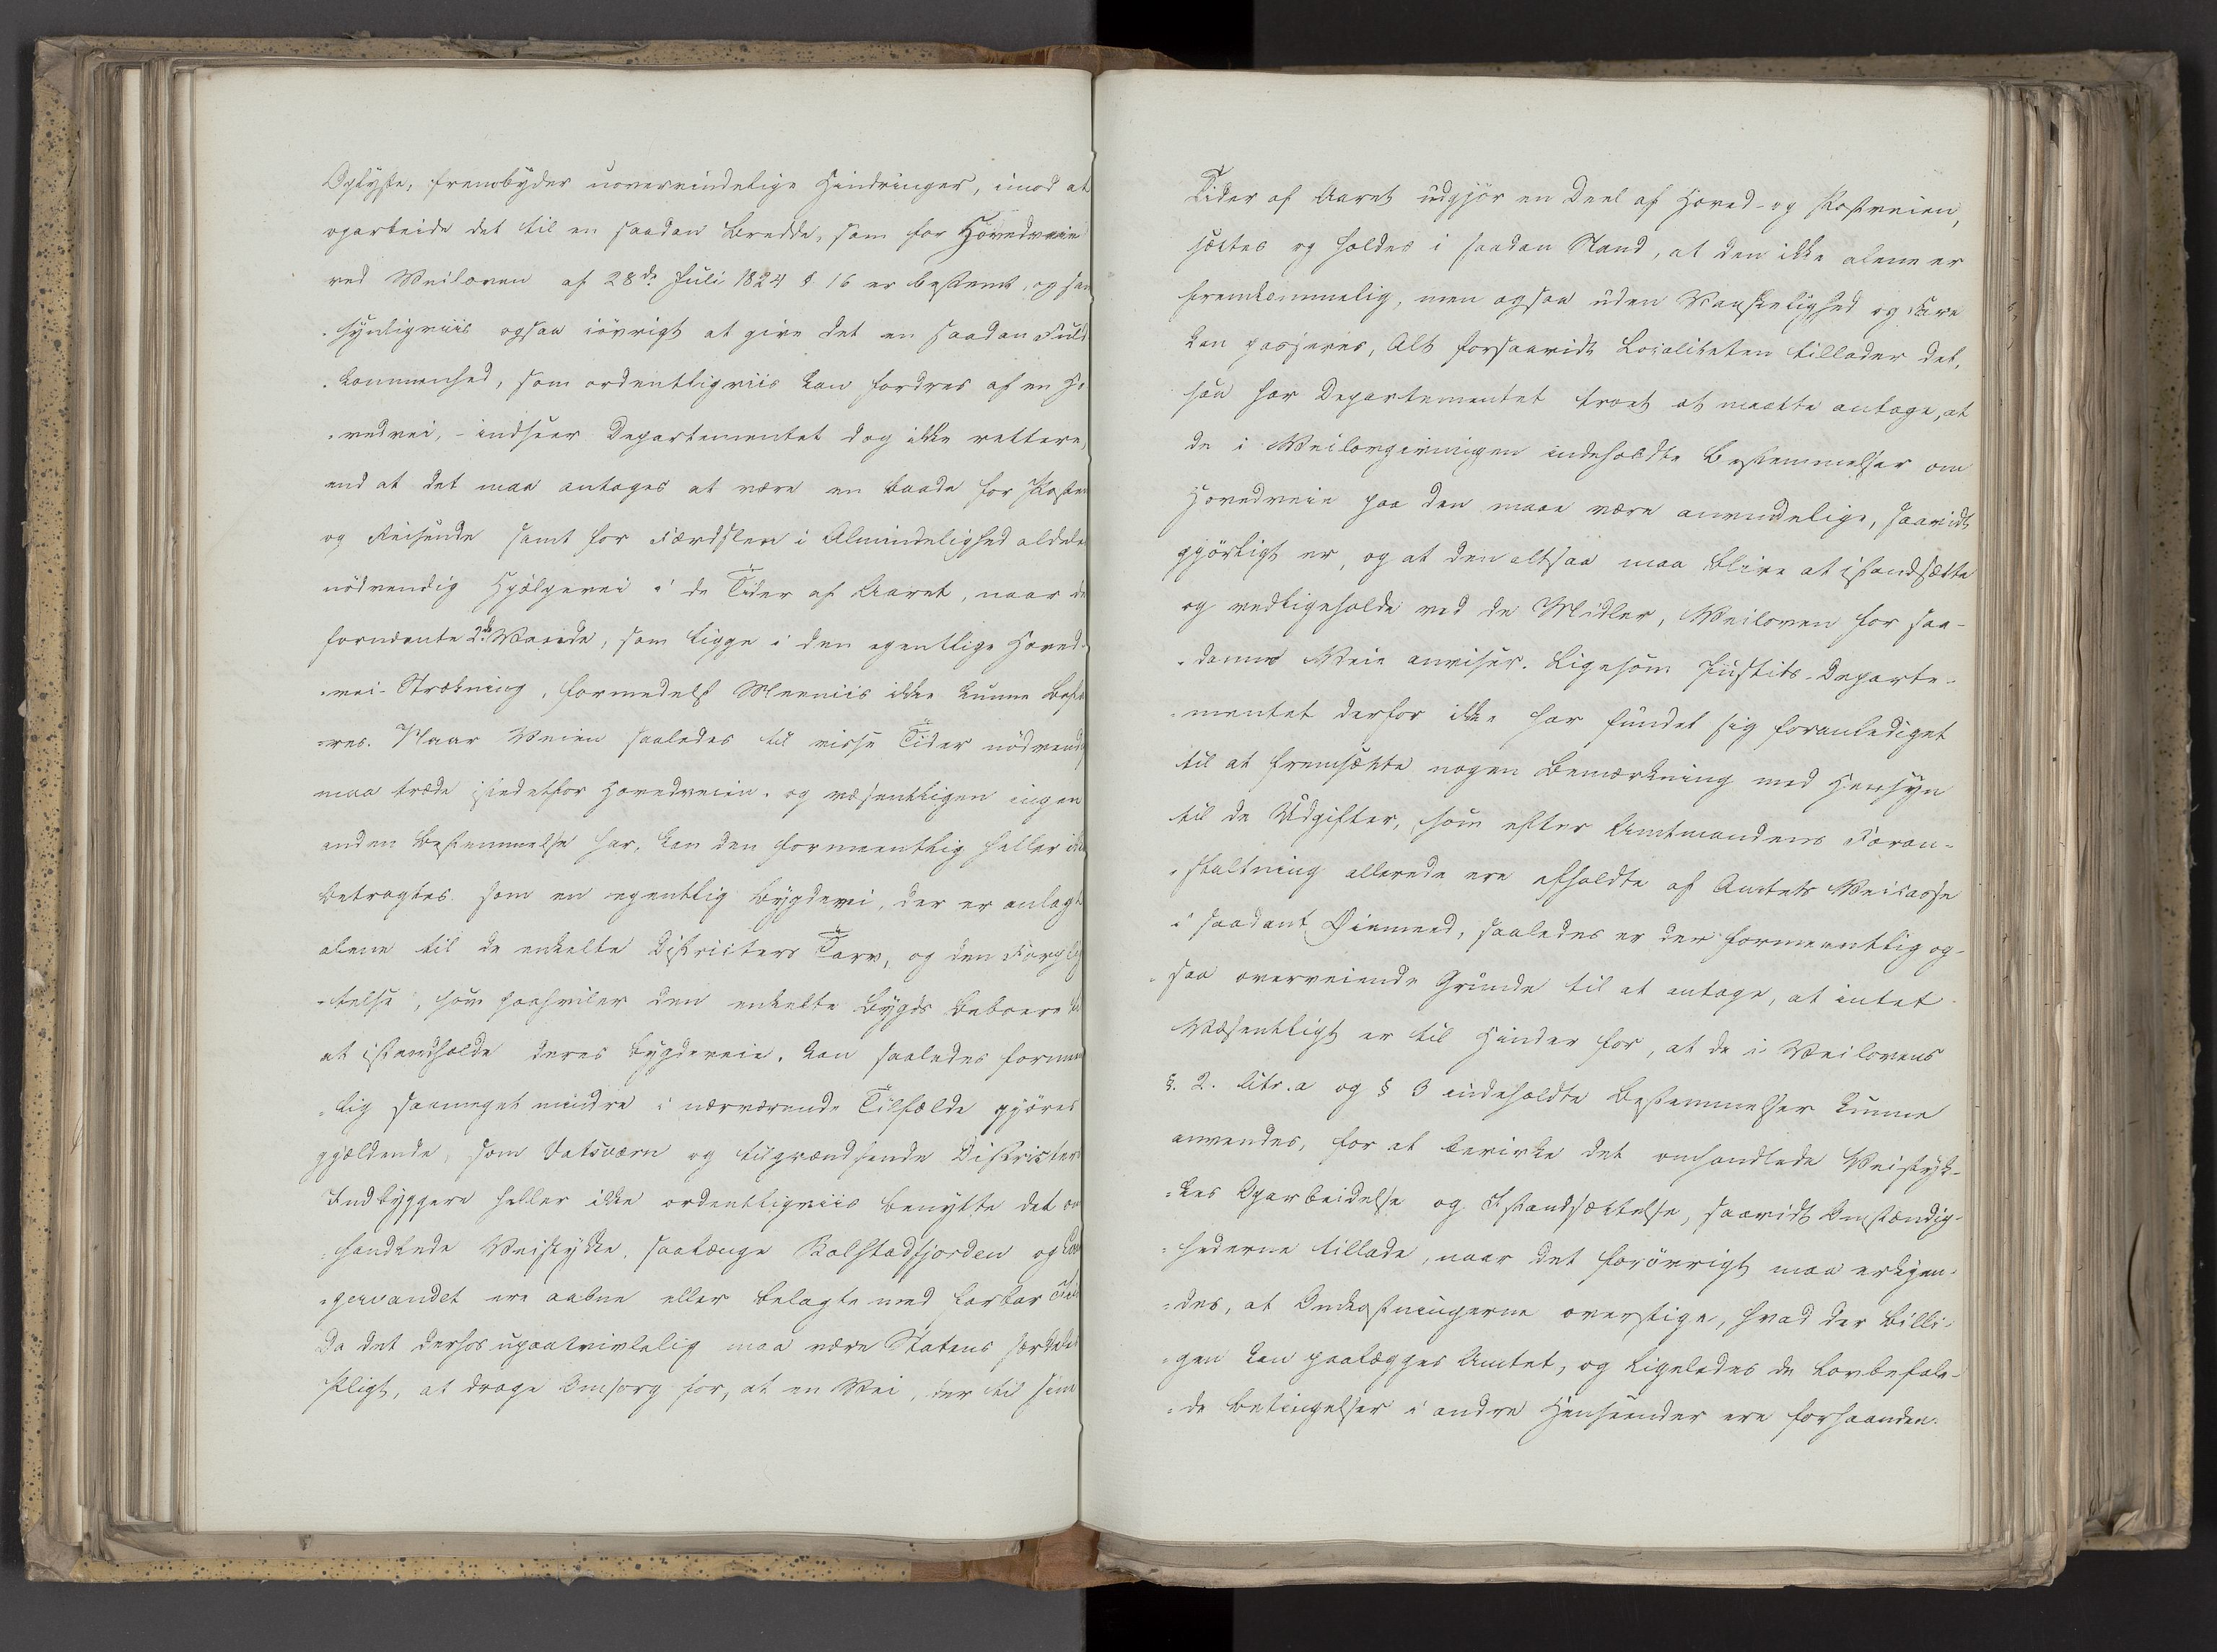 Oplyste, frembyder uovervindelige Hindringer, imod at
oparbeide det til en saadan Bredde, som for Hovedveie
ved Veiloven af 28de Juli 1824 § 16 er bestemt, og san
-synligviis ogsaa iøvrigt at give det en saadan Fuld
-kommenhed, som ordentligviis kan fordres af en Ho
-vedvei, - indseer Departementet dog ikke rettere,
end at det maa antages at være en baade for Posten
og Reisende samt for Færdslen i Almindelighed aldeles
nödvendig Hjælpevei i de Tider af Aaret, naar de
fornævnte 2de Vande, som ligge i den egentlige Hoved-
-vei-Strækning, formedelst Meeniis ikke kunne befa
-res. Naar Veien saaledes til visse Tider nödvendig
maa træde istedetfor Hovedveien, og væsentligen ingen
anden Bestemmelse har, kan den formeentlig heller ikke
betragtes som en egentlig Bygdevei, der er anlagt
alene til de enkelte Districters Tarv, og den Forplig
-telse, som paahviler den enkelte Bygds Beboere til
at istandholde deres Bygdeveie, kan saaledes formeent
-lig saameget mindre i nærværende Tilfælde gjöres
gjældende, som Vatsværn og tilgrændsende Districters
Indbyggere heller ikke ordentligviis benytte det om
-handlede Veistykke, saalænge Bolstadfjorden og Van
-gervandet ere aabne eller belagte med farbar Iis
Da det derhos upaatvivlelig maa være Statens særdeles
Pligt, at drage Omsorg for, at en Vei, der til sine
Tider af Aaret udgjör en Deel af Hoved- og Postveien,
sættes og holdes i saadan Stand, at den ikke alene er
fremkommelig, men ogsaa uden Vanskelighed og Fare
kan passeres, Alt forsaavidt Localiteten tillader det,
saa har Departementet troet at maatte antage, at
de i Veilovgivningen indeholdte Bestemmelser om
Hovedveie paa den maae være anvendelige, saavidt
gjörligt er, og at den altsaa maa blive at istandsætte
og vedligeholde ved de Midler, Veiloven for saa-
-danne Veie anviser. Ligesom Justits-Departe-
-mentet derfor ikke har fundet sig foranlediget
til at fremsætte nogen Bemærkning med Hensyn
til de Udgifter, som efter Amtmandens Foran-
-staltning allerede ere afholdte af Amtets Veicasse
i saadant Øiemeed, saaledes er der formeentlig og-
-saa overveiende Grunde til at antage, at intet
Væsentligt er til Hinder for, at de i Veilovens
§. 2. litr. a og § 3 indeholdte Bestemmelser kunne
anvendes, for at bevirke det omhandlede Veistyk-
-kes Oparbeidelse og Istandsættelse, saavidt Omstændig-
-hederne tillade, naar det forövrigt maa erkjen-
-des, at Omkostningerne overstige, hvad der billi-
-gen kan paalægges Amtet, og ligeledes de lovbefale-
-de Betingelser i andre Henseender ere forhaanden.